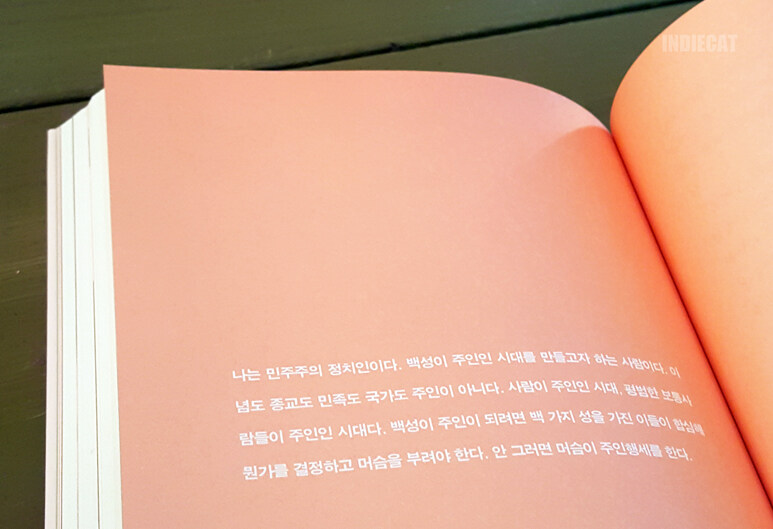 INDIECAT
나는 민주주의 정치인이다. 백성이 주인인 시대를 만들고자 하는 사람이다. 이
념도 종교도 민족도 국가도 주인이 아니다. 사람이 주인인 시대, 평범한 보통사
람들이 주인인 시대다. 백성이 주인이 되려면 백 가지 성을 가진 이들이 합심해
뭔가를 결정하고 머슴을 부려야 한다. 안 그러면 머슴이 주인행세를 한다.